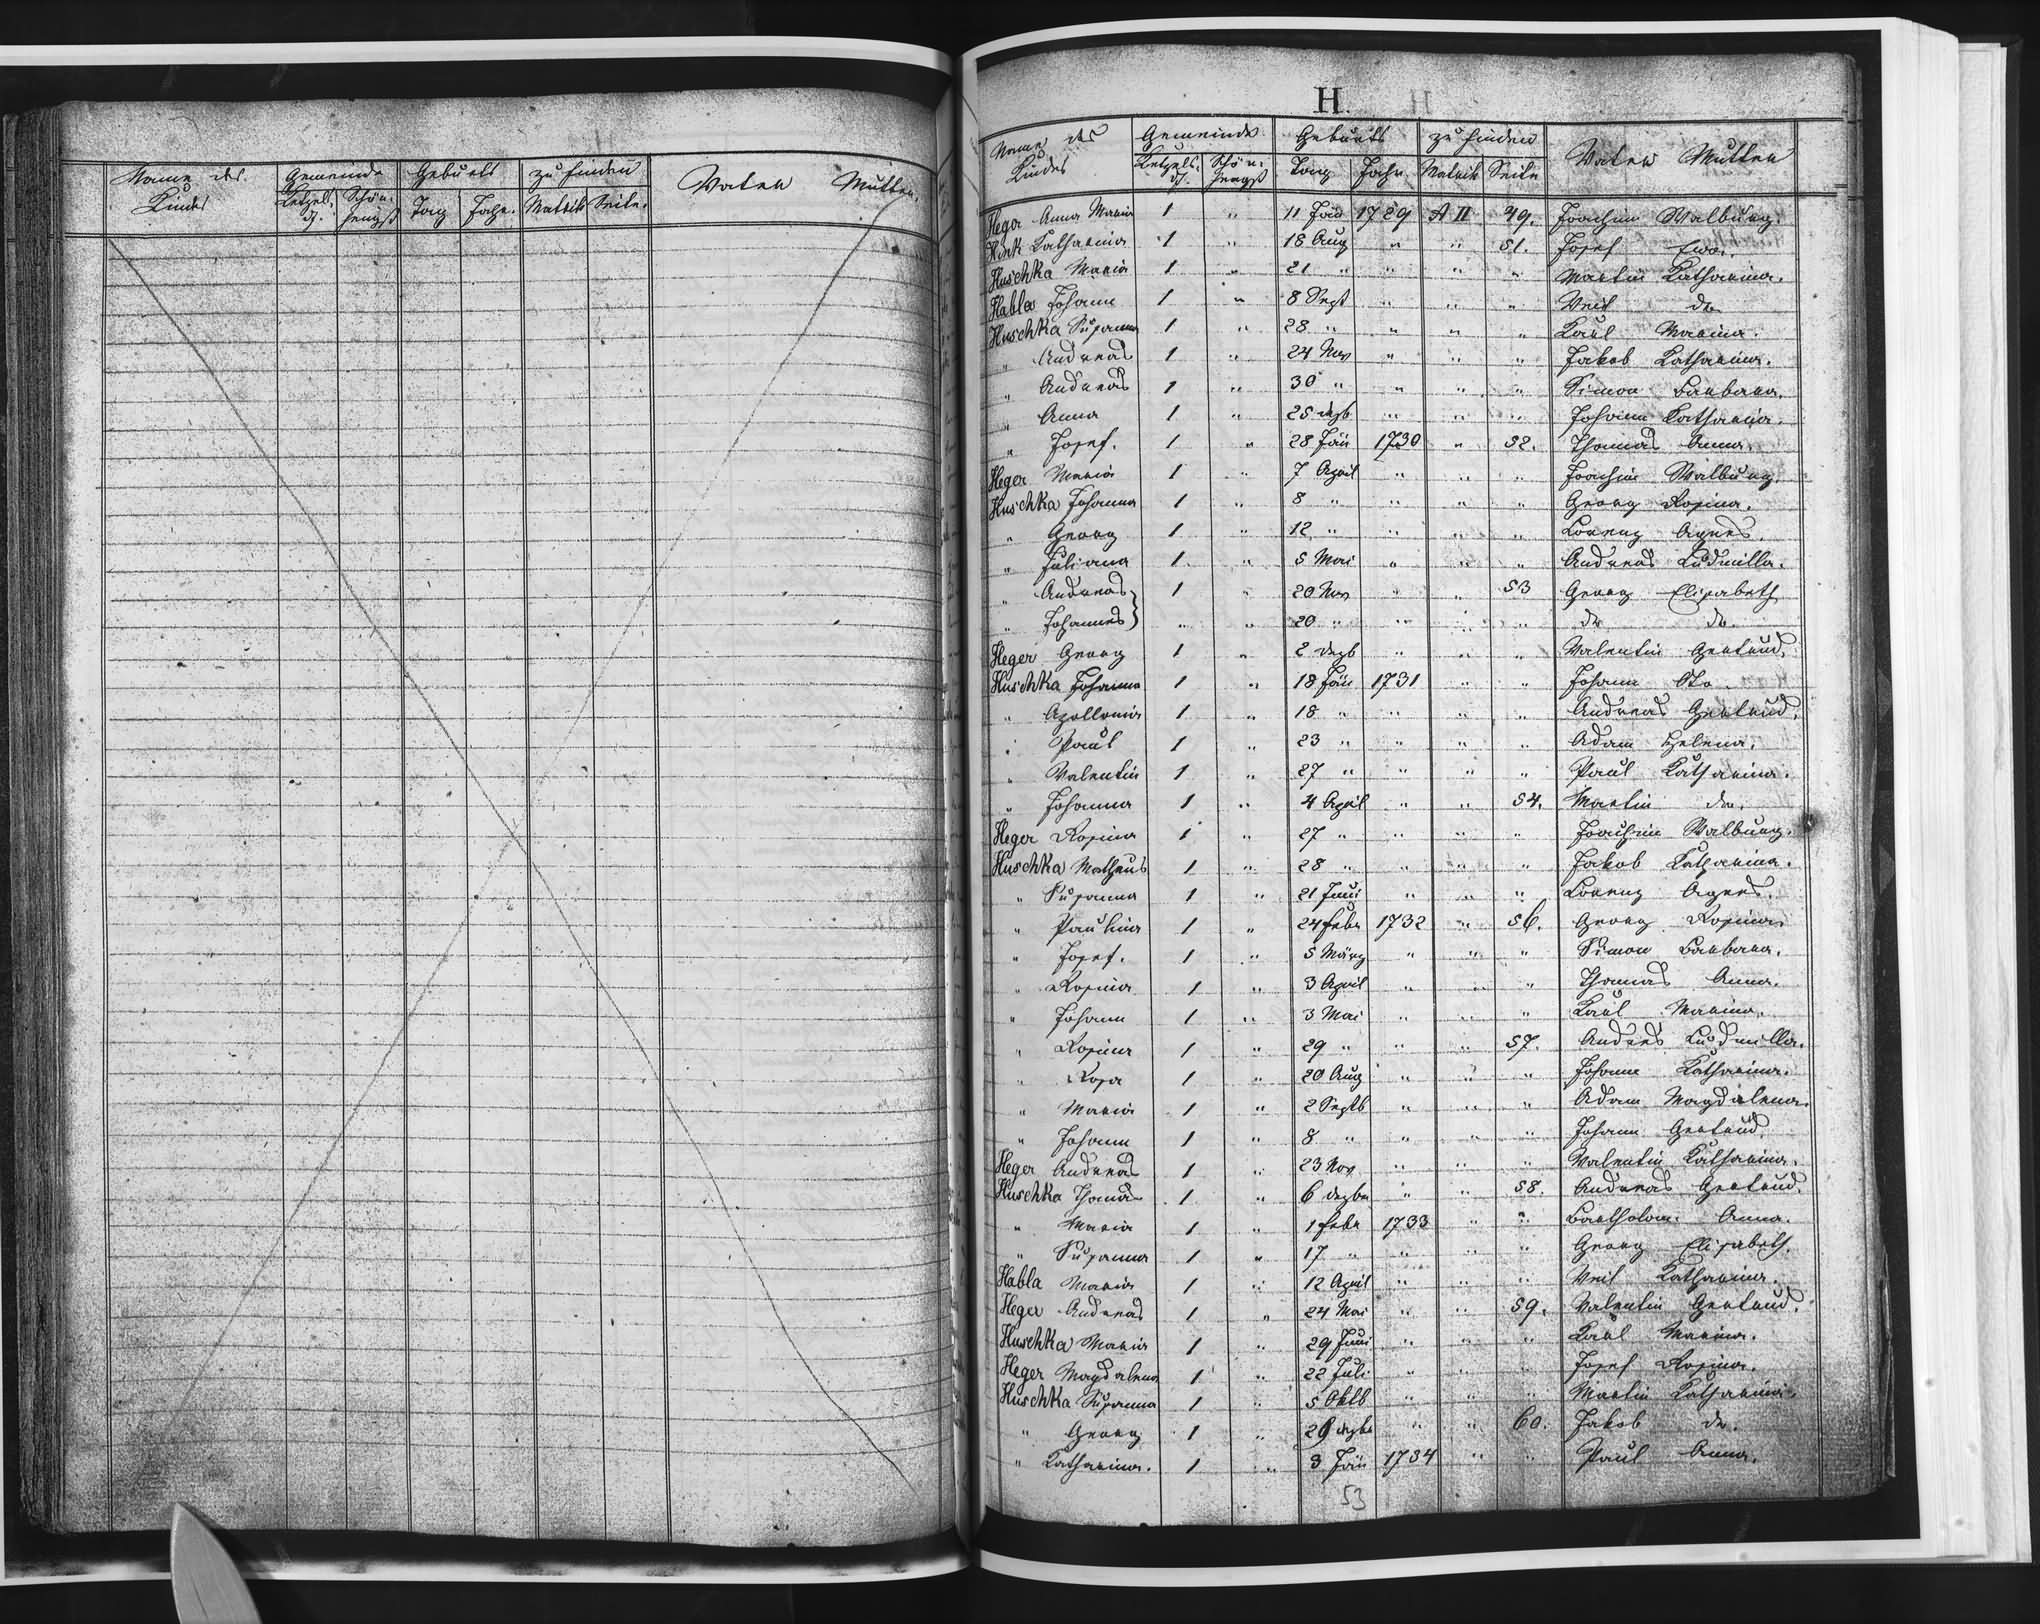 Name des Kindes Gemeinde Geburts zu finden Vater Mutter.
Ketzels-df. Schön-hengst Tag Jahr. Matrik Seite.
H.
Name des Kindes Gemeinde Geburts zu finden Vater Mutter
Ketzels-df. Schön-hengst Tag Jahr Matrik Seite
Heger Anna Maria 1 " 11 Jän 1729 A II 49. Joachim Walburg.
Hink Katharina 1 " 18 Aug " " 51. Josef Eva.
Huschka Maria 1 " 21 " " " " Martin Katharina.
Habla Johann 1 " 8 Sept " " " Veit do
Huschka Susanna 1 " 28 " " " " Karl Marina.
" Andreas 1 " 24 Nov " " " Jakob Katharina.
" Andreas 1 " 30 " " " " Simon Barbara.
" Anna 1 " 25 dezb " " " Johann Katharina.
" Josef. 1 " 28 Jän 1730 " 52. Thomas Anna.
Heger Maria 1 " 7 April " " " Joachim Walburg.
Huschka Johanna 1 " 8 " " " " Georg Rosina.
" Georg 1 " 12 " " " " Lorenz Agnes.
" Juliana 1 " 5 Mai " " " Andreas Ludmilla.
" Andreas } 1 " 20 Nov " " 53 Georg Elisabeth
" Johannes } " " 20 " " " " do do
Heger Georg 1 " 2 dezb " " " Valentin Gertrud.
Huschka Johanna 1 " 18 Jän 1731 " " Johann
" Apollonia 1 " 18 " " " " Andreas Gertrud.
" Paul 1 " 23 " " " " Adam Helena.
" Valentin 1 " 27 " " " " Paul Katharina.
" Johanna 1 " 4 April " " 54. Martin do.
Heger Rosina 1 " 27 " " " " Joachim Walburg.
Huschka Matheus 1 " 28 " " " " Jakob Katharina.
" Susanna 1 " 21 Juni " " " Lorenz Agnes.
" Paulina 1 " 24 Febr 1732 " 56. Georg Rosina
" Josef. 1 " 5 März " " " Simon Barbara.
" Rosina 1 " 3 April " " " Thomas Anna.
" Johann 1 " 3 Mai " " " Karl Marina.
" Rosina 1 " 29 " " " 57. Andres Ludmilla.
" Rosa 1 " 20 Aug " " " Johann Katharina.
" Maria 1 " 2 Septb " " " Adam Magdalena.
" Johann 1 " 8 " " " " Johann Gertrud.
Heger Andreas 1 " 23 Nov " " " Valentin Katharina.
Huschka Thomas 1 " 6 dezbr " " 58. Andreas Gertrud.
" Maria 1 " 1 Febr 1733 " " Bartholom. Anna.
" Susanna 1 " 17 " " " " Georg Elisabeth.
Habla Maria 1 " 12 April " " " Veit Katharina.
Heger Andreas 1 " 24 Mai " " 59. Valentin Gertrud.
Huschka Maria 1 " 29 Juni " " " Karl Marina.
Heger Magdalena 1 " 22 Juli " " " Josef Rosina.
Huschka Susanna 1 " 5 Oktb " " " Martin Katharina.
" Georg 1 " 29 dezbr " " 60. Jakob do.
" Katharina. 1 " 3 Jän 1734 " " Paul Anna.
53